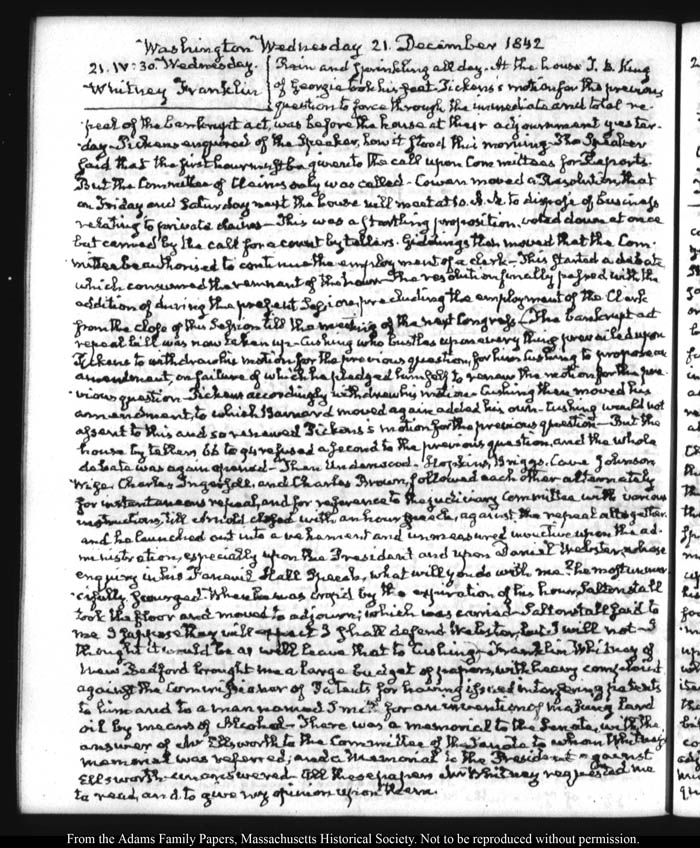 Washington Wednesday 21. December 1842
21. IV: 30. Wednesday.
Whitney Franklin
Rain and sprinkling all day. At the house T. B. King
of Georgia took his seat Pickens's motion for the previous
question to force through the immediate and total re-
peal of the bankrupt act, was before the house at their adjournment yester-
day. Pickens enquired of the Speaker, how it stood this morning. The Speaker
said that the first hour must be given to the call upon Committees for Reports.
But the Committee of Claims only was called - Cowen moved a Resolution that
on Friday and Saturday next the house will meet at 10. A.M. to dispose of business
relating to private claims - This was a startling proposition, voted down at once
but carried by the call for a count by tellers. Giddings then moved that the Com-
mittee be authorised to continue the employment of a clerk - This started a debate
which consumed the remnant of the hour - The resolution finally passed with the
addition of during the present Session, precluding the employment of the Clerk
from the close of this Session till the meeting of the next Congress - The bankrupt act
repeal bill was now taken up - Cushing who bustles upon every thing prevailed upon
Pickens to withdraw his motion for the previous question, for him Cushing to propose an
amendment, on failure of which he pledged himself to renew the motion for the pre-
vious question - Pickens accordingly withdrew his motion - Cushing then moved his
amendment, to which Barnard moved again added his own - Cushing would not
assent to this and so renewed Pickens's motion for the previous question - But the
house by tellers 66 to 94 refused a second to the previous question, and the whole
debate was again opened - Then Underwood, Hopkins, Briggs, Cave Johnson
Wise, Charles Ingersoll, and Charles Brown, followed each other alternately
for instantaneous repeal, and for reference to the judiciary Committee with various
instructions, till Arnold closed with an hour speech, against the repeal altogether.
and he launched out into a vehement and unmeasured invective upon the ad-
ministration, especially upon the President and upon Daniel Webster, whose
enquiry in his Faneuil Hall Speech, what will you do with me? he most unmer-
cifully scourged. When he was arrested by the expiration of his hour, Saltonstall
took the floor and moved to adjourn; which was carried - Saltonstall said to
me I suppose they will expect I shall defend Webster, but I will not - I
thought it would be as well leave that to Cushing - Franklin Whitney of
New Bedford brought me a large budget of papers, with heavy complaint
against the Commissioner of Patents for having issued interfering patents
to him and to a man named Smith for an invention of making Lard
oil by means of Alcohol - There was a memorial to the Senate, with the
answer of Mr Ellsworth to the Committee of the Senate to whom Whitney's
memorial was referred; and a Memorial to the President against
Ellsworth unanswered. All these papers Mr Whitney requested me
to read, and to give my opinion upon them.
From the Adams Family Papers, Massachusetts Historical Society. Not to be reproduced without permission.